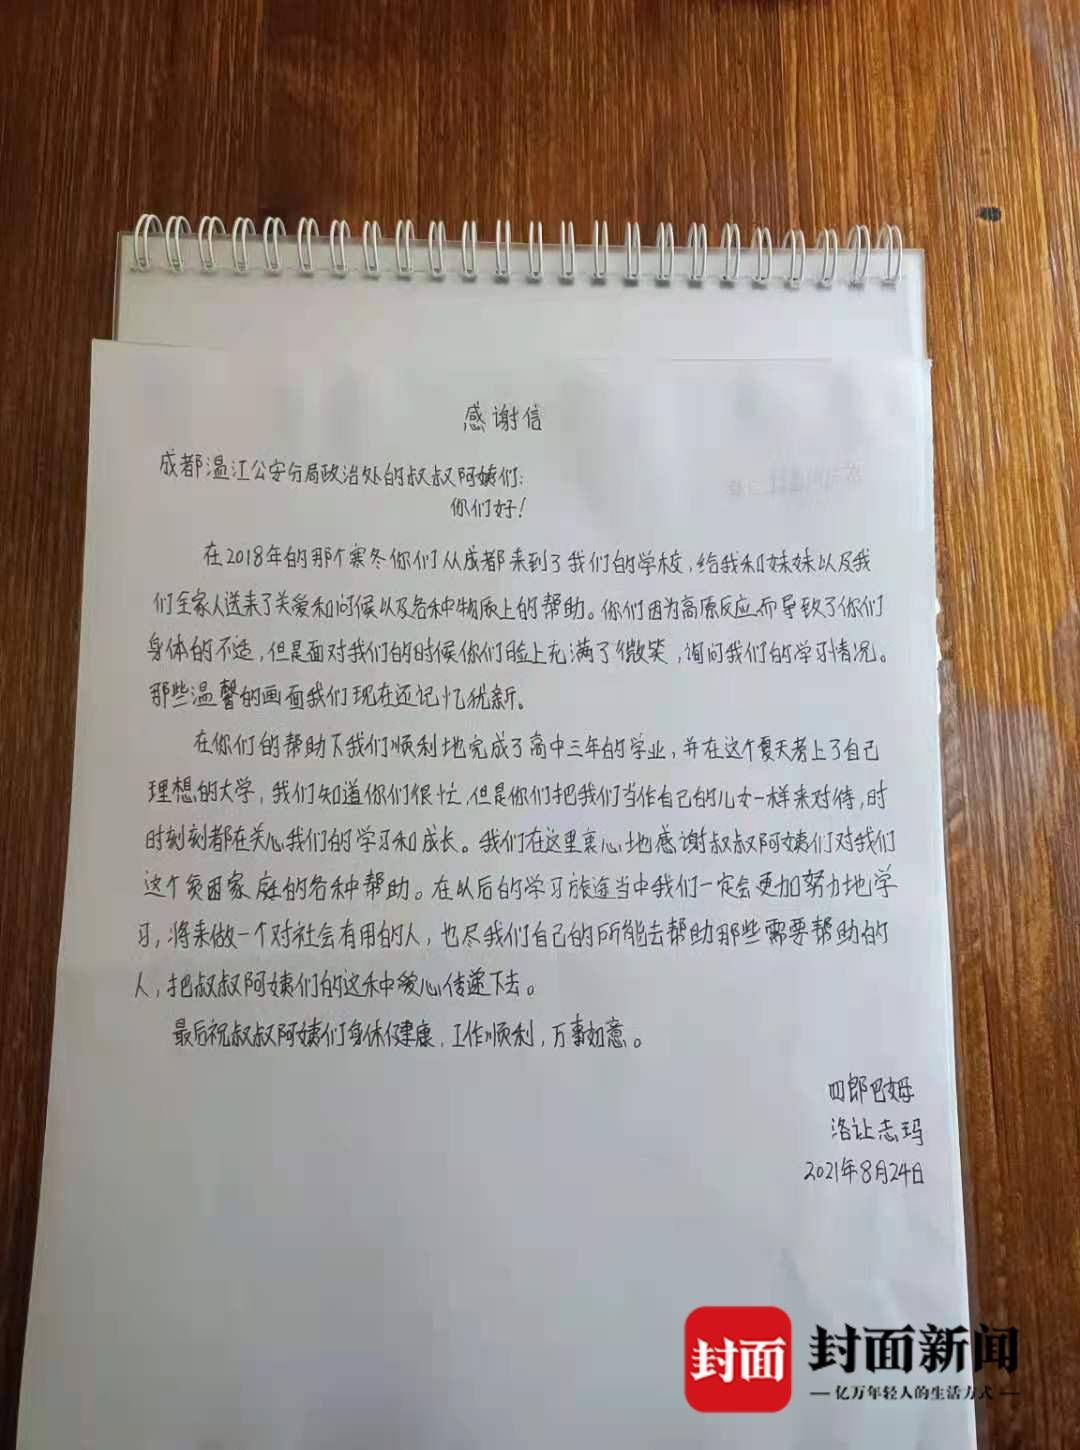 感谢信
成都温江公安分局政治处的叔叔阿姨们：
你们好！
在2018年的那个寒冬你们从成都来到了我们的学校，给我和妹妹以及我
们全家人送来了关爱和问候以及各种物质上的帮助。你们因为高原反应而导致了你们
身体的不适，但是面对我们的时候你们脸上充满了微笑，询问我们的学习情况。
那些温馨的画面我们现在还记忆犹新。
在你们的帮助下我们顺利地完成了高中三年的学业，并在这个夏天考上了自己
理想的大学，我们知道你们很忙，但是你们把我们当作自己的儿女一样来对待，时
时刻刻都在关心我们的学习和成长。我们在这里衷心地感谢叔叔阿姨们对我们
这个贫困家庭的各种帮助。在以后的学习旅途当中我们一定会更加努力地学
习，将来做一个对社会有用的人，也尽我们自己的所能去帮助那些需要帮助的
人，把叔叔阿姨们的这种爱心传递下去。
最后祝叔叔阿姨们身体健康，工作顺利，万事如意。
四郎巴姆
洛让志玛
2021年8月24日
封面
封面新闻
—亿万年轻人的生活方式—